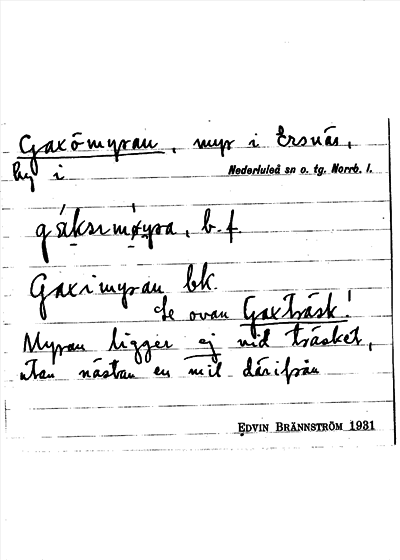 Gaxömyran, myr i Ersnäs,
by i Nederluleå sn o. tg. Norrb. l.
b. f.
Gaximyran bk.
Se ovan Gaxträsk!
Myran ligger ej vid träsket,
utan nästan en mil därifrån
EDVIN BRÄNNSTRÖM 1931